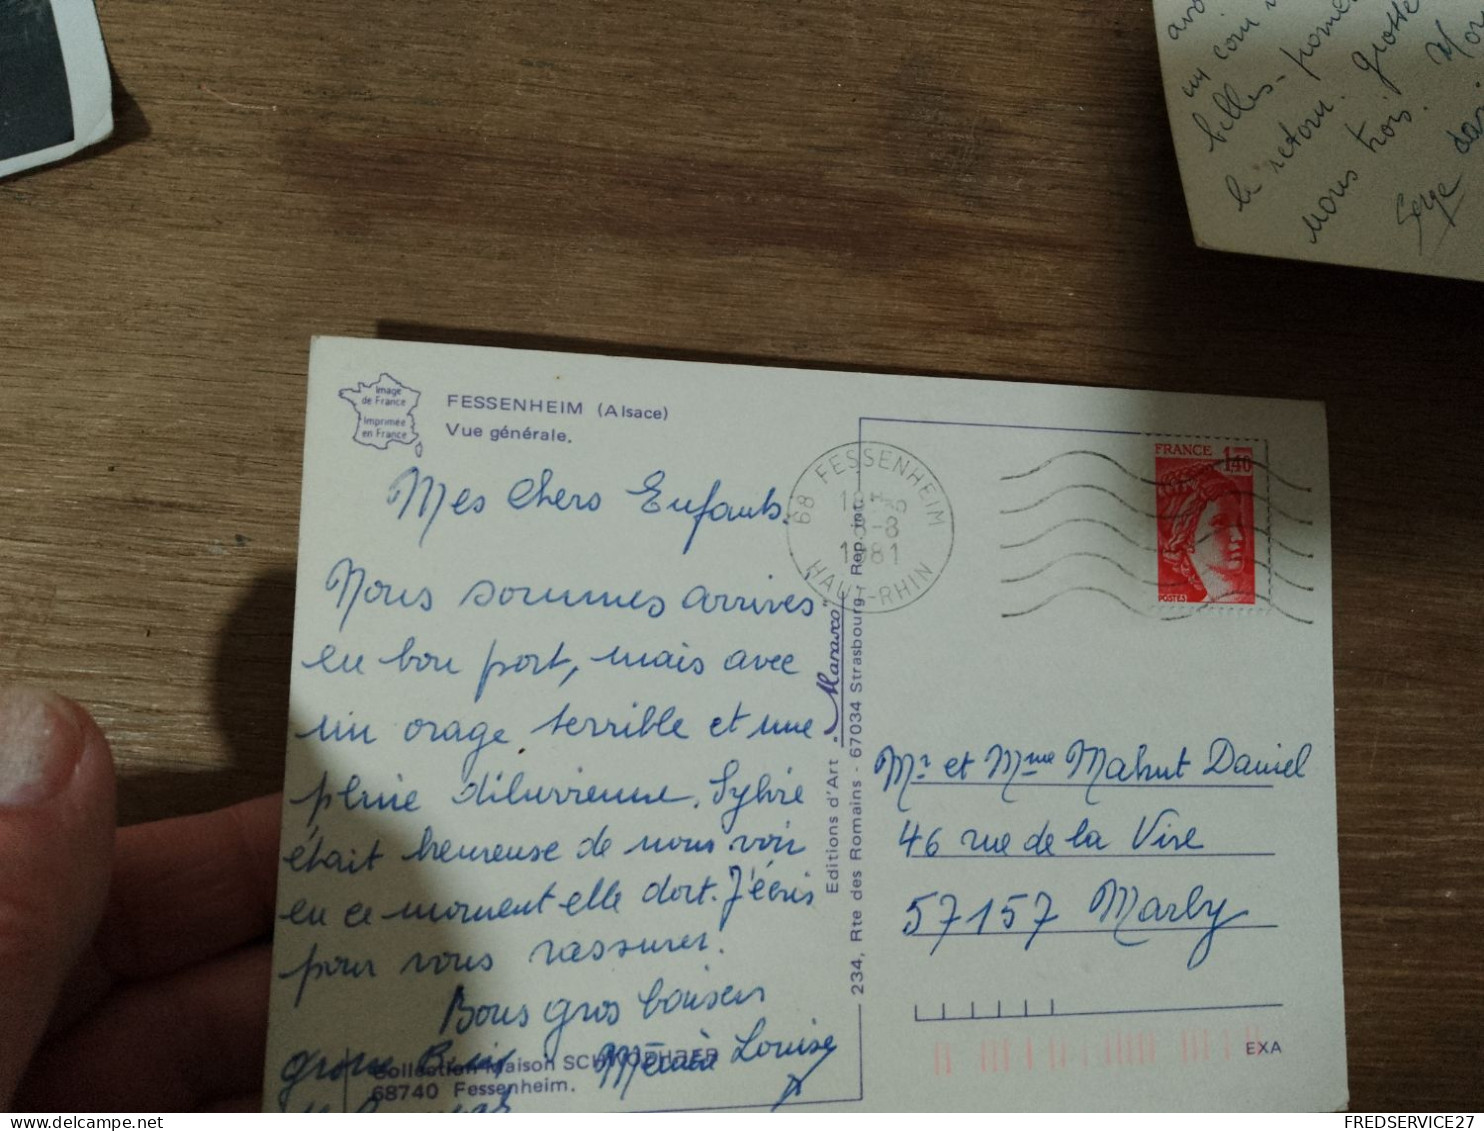 un coin
belles - 
le retour. grosse
nous trois.
Serge
Image
de France
Imprimée
en France
FESSENHEIM (Alsace)
Vue générale.
Mes chers Enfants.
Nous sommes arrivés
en bon port, mais avec
un orage terrible et une
pluie diluvienne. Sylvie
était heureuse de nous voir
en ce moment elle dort. J'écris
pour vous rassurer.
Bons gros baisers
gros
Mémère Louise
Collection Maison SCHWOEHRER
68740 Fessenheim.
Editions d'Art "Marasco"
234, Rte des Romains - 67034 Strasbourg - Rep. int.
68 FESSENHEIM
-8
1981
HAUT-RHIN
FRANCE 1,40
POSTES
Mr et Mme Mahut Daniel
46 rue de la Vire
57157 Marly
EXA
FREDSERVICE27